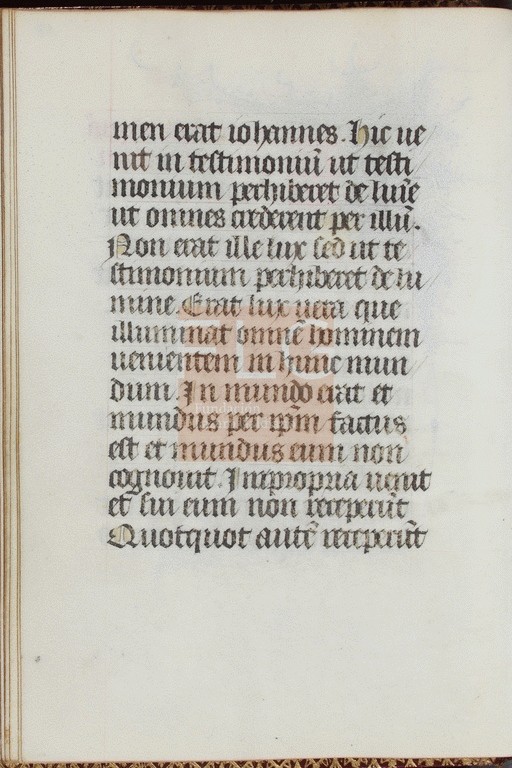 men erat iohannes. Hic ue
nit in testimoniū ut testi
monium perhiberet de lumīe
ut omnes crederent per illū.
Non erat ille lux sed ut te
stimonium perhiberet de lu
mine. Erat lux uera que
illuminat omnē hominem
uenientem in hunc mun
dum. In mundo erat et
mundus per ip̄m factus
est et mundus eum non
cognouit. In propria uenit
et sui eum non receperūt
Quotquot autē receperūt